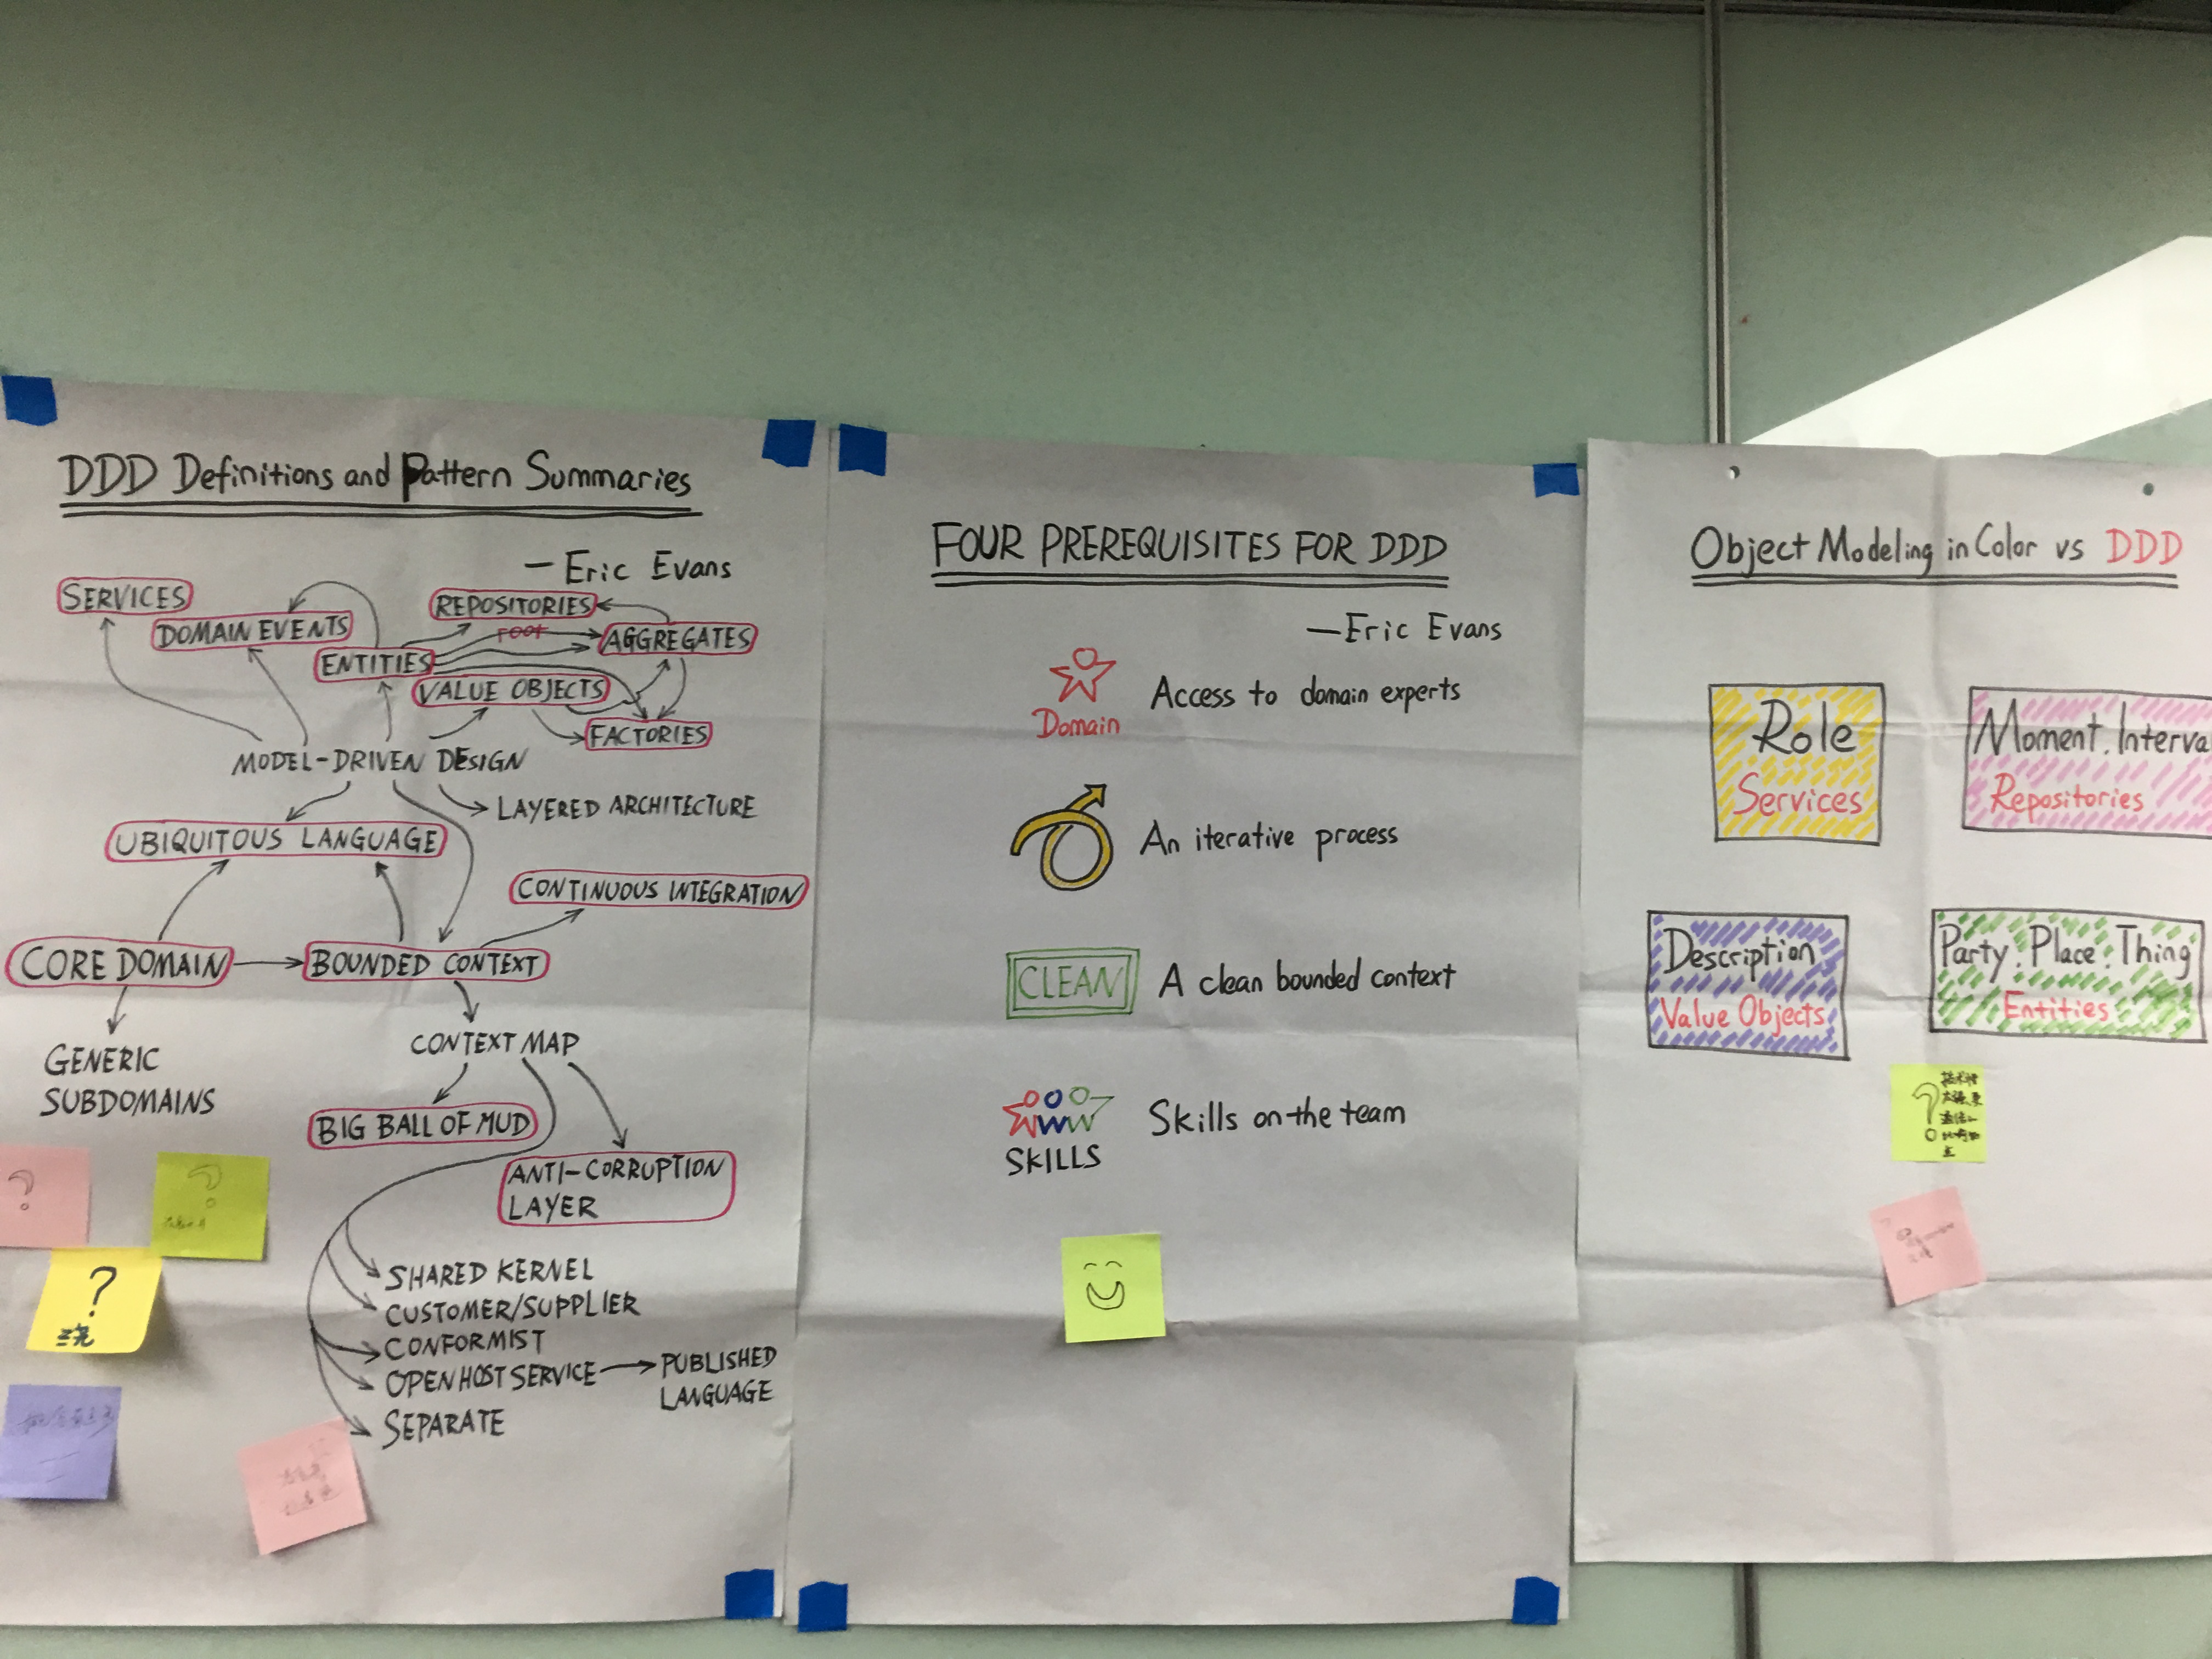 DDD Definitions and Pattern Summaries
— Eric Evans
SERVICES
DOMAIN EVENTS
REPOSITORIES
root
AGGREGATES
ENTITIES
VALUE OBJECTS
FACTORIES
MODEL-DRIVEN DESIGN
LAYERED ARCHITECTURE
UBIQUITOUS LANGUAGE
CONTINUOUS INTEGRATION
CORE DOMAIN
BOUNDED CONTEXT
GENERIC
SUBDOMAINS
CONTEXT MAP
BIG BALL OF MUD
ANTI-CORRUPTION
LAYER
SHARED KERNEL
CUSTOMER/SUPPLIER
CONFORMIST
OPEN HOST SERVICE
PUBLISHED
LANGUAGE
SEPARATE
?
?
?
FOUR PREREQUISITES FOR DDD
— Eric Evans
Domain
Access to domain experts
An iterative process
CLEAN
A clean bounded context
SKILLS
Skills on the team
Object Modeling in Color vs DDD
Role
Services
Moment. Interva
Repositories
Description
Value Objects
Party. Place. Thing
Entities
?